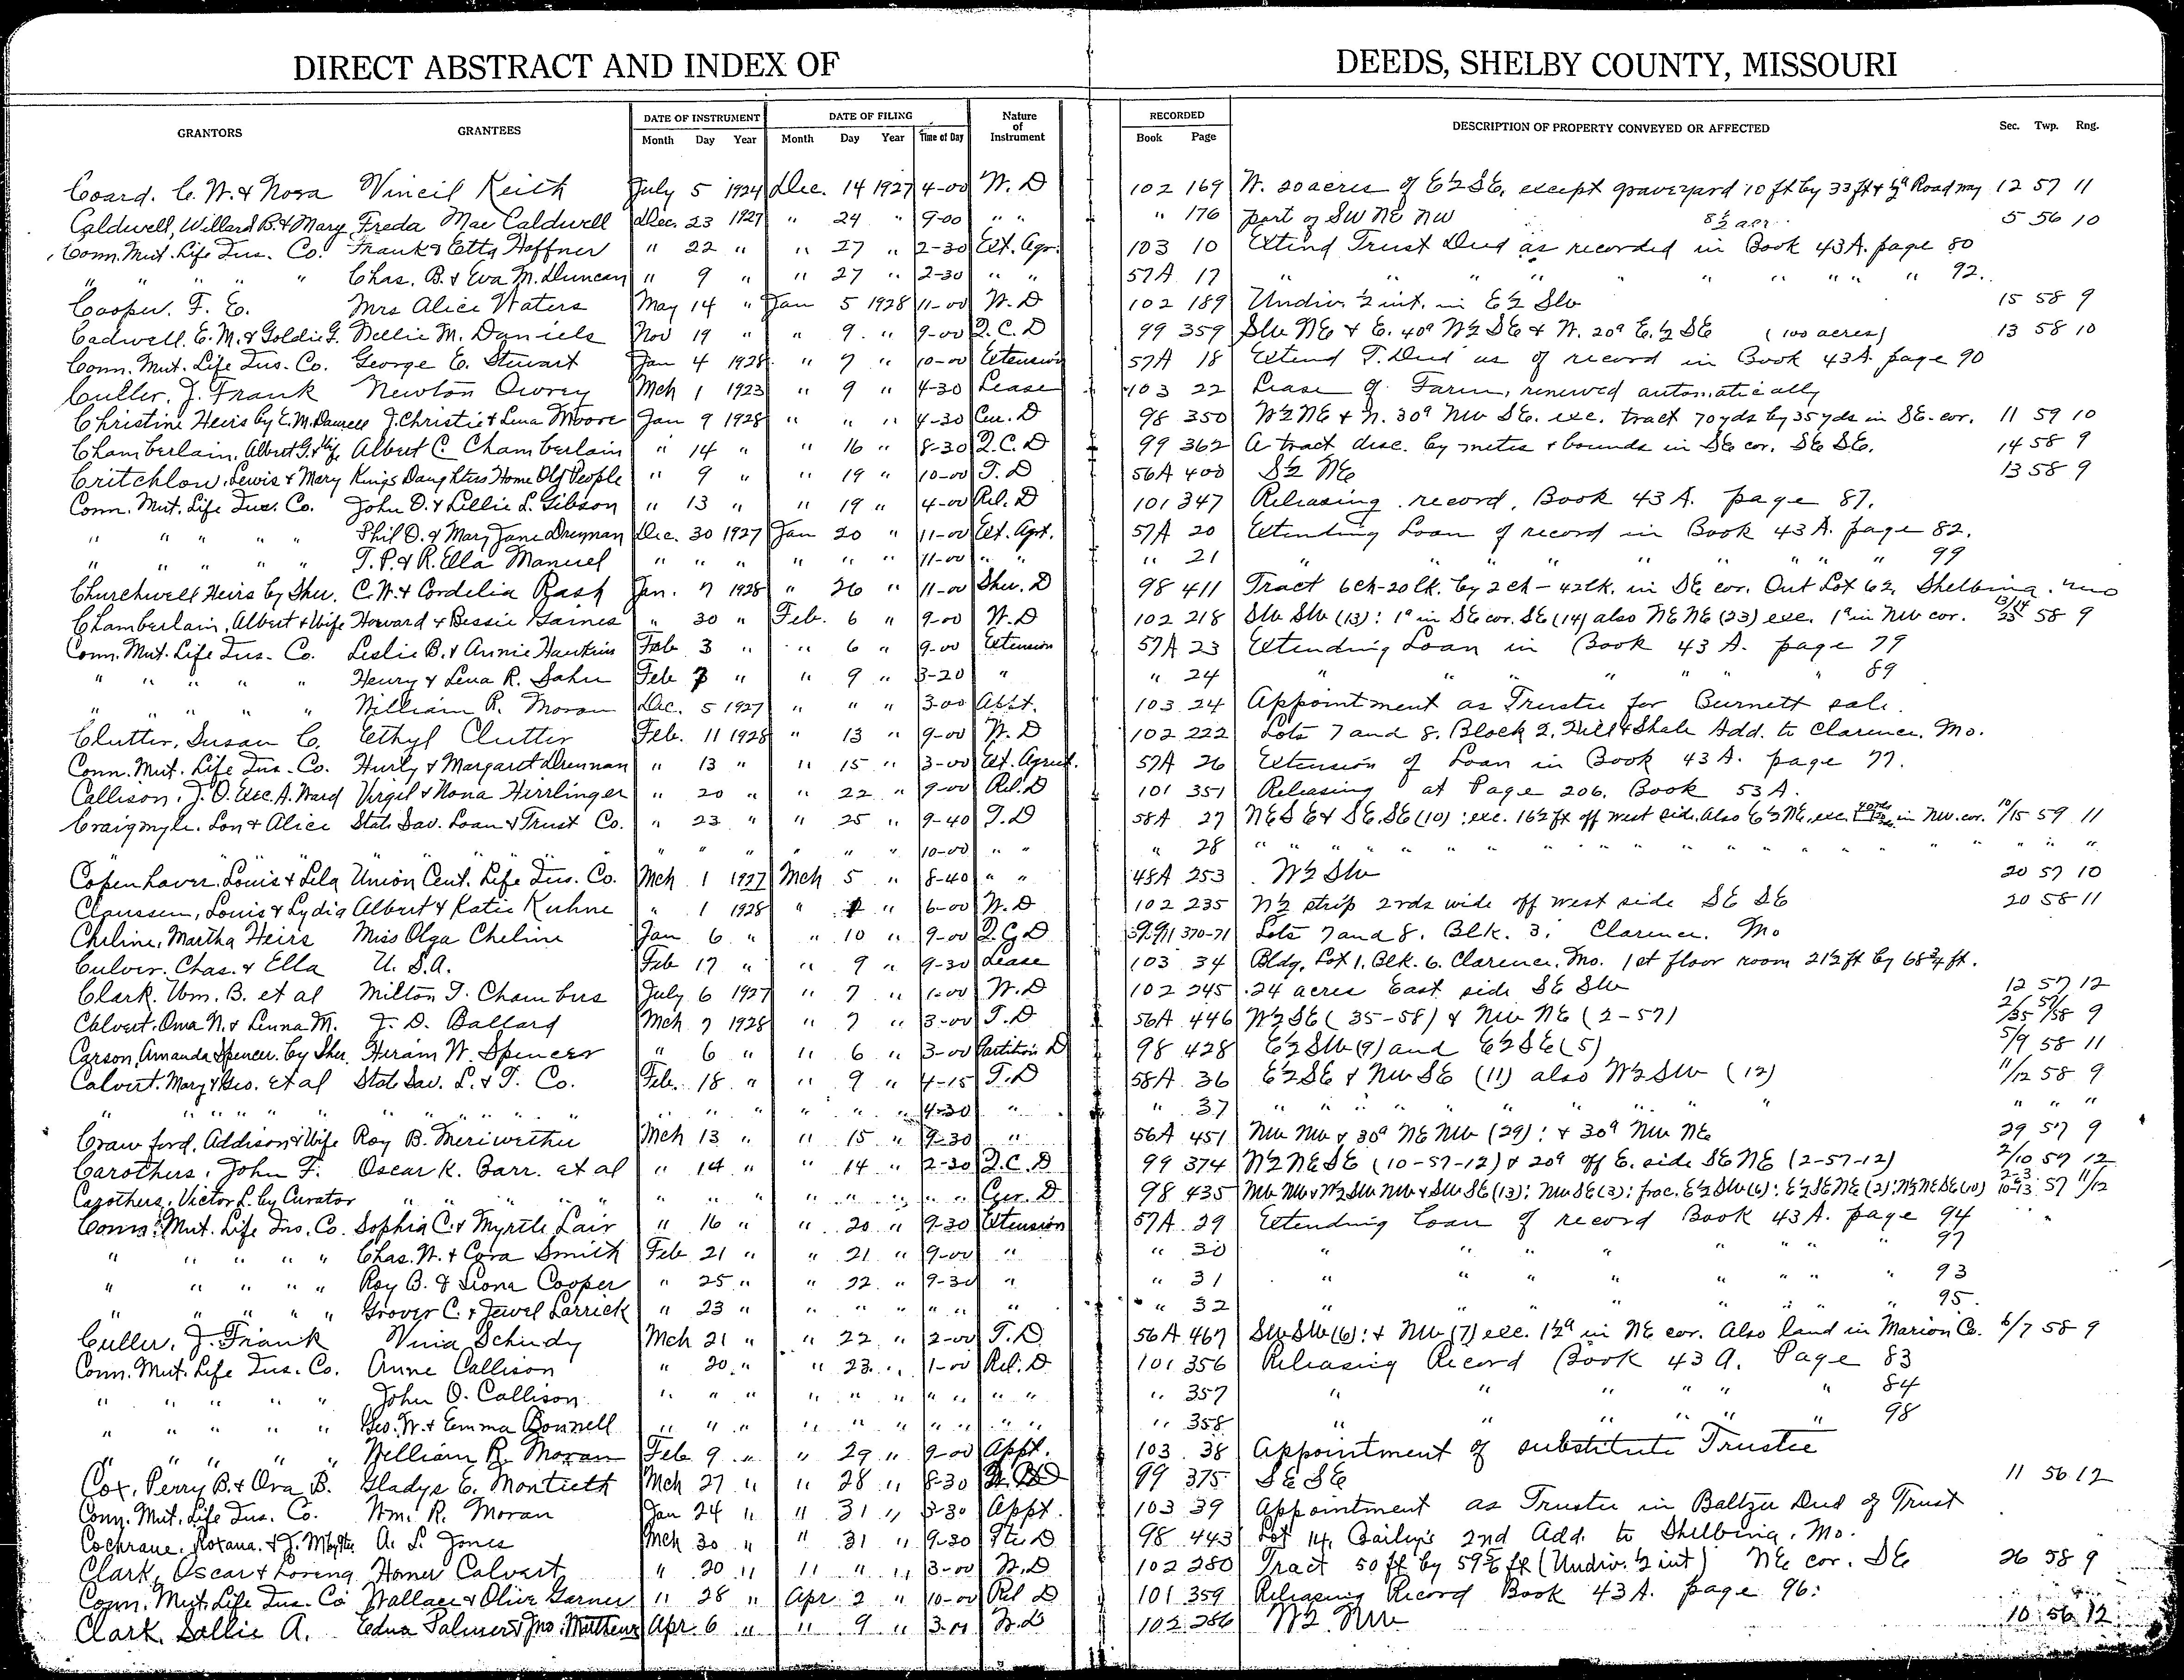 DIRECT ABSTRACT AND INDEX OF DEEDS, SHELBY COUNTY, MISSOURI
GRANTORS GRANTEES DATE OF INSTRUMENT DATE OF FILING Nature of Instrument RECORDED DESCRIPTION OF PROPERTY CONVEYED OR AFFECTED Sec. Twp. Rng.
Month Day Year Month Day Year Time of Day Book Page
Coard. C. W. & Nora Vincil Keith July 5 1924 Dec. 14 1927 4-00 W. D 102 169 W. 20 acres of E½ SE, except graveyard 10 ft by 33 ft & Road way 12 57 11
Caldwell, Willard B. & Mary Freda Mae Caldwell Dec. 23 1927 " 24 " 9-00 " " " 176 part of SW NE NW 8½ acr. 5 56 10
Conn. Mut. Life Ins. Co. Frank & Etta Haffner " 22 " " 27 " 2-30 Ext. Agr. 103 10 Extend Trust Deed as recorded in Book 43A. page 80
" " " " " Chas. B. & Eva M. Duncan " 9 " " 27 " 2-30 " " 57A 17 " " " " " " " " " 92.
Cooper. F. E. Mrs Alice Waters May 14 " Jan 5 1928 11-00 W. D 102 189 Undiv. ½ int. in E½ SW 15 58 9
Cadwell. E. M. & Goldie G. Nellie M. Daniels Nov 19 " " 9. " 9-00 Q. C. D 99 359 SW NE & E. 40a W½ SE & W. 20a E.½ SE (100 acres) 13 58 10
Conn. Mut. Life Ins. Co. George E. Stewart Jan 4 1928 " 7 " 10-00 Extension 57A 18 Extend T. Deed as of record in Book 43A. page 90
Culler, J. Frank Newton Owrey Mch 1 1923 " 9 " 4-30 Lease 103 22 Lease of Farm, renewed automatically
Christine Heirs by E. M. J. Christie & Lena Moore Jan 9 1928 " " " 4-30 Cur. D 98 350 W½ NE & N. 30a NW SE. exc. tract 70yds by 35yds in SE. cor. 11 59 10
Chamberlain, Albert G. & Wife Albert C. Chamberlain " 14 " " 16 " 8-30 Q. C. D 99 362 A tract desc. by metes & bounds in SE cor. SE SE. 14 58 9
Critchlow, Lewis & Mary Kings Daughters Home Old People " 9 " " 19 " 10-00 T. D 56A 400 S½ NE 13 58 9
Conn. Mut. Life Ins. Co. John D. & Lillie L. Gibson " 13 " " 19 " 4-00 Rel. D 101 347 Releasing record, Book 43A. page 87.
" " " " " Phil D. & Mary Jane Drennan Dec. 30 1927 Jan 20 " 11-00 Ext. Agrt. 57A 20 Extending Loan of record in Book 43A. page 82.
" " " " " T. P. & R. Ella Manuel " " " " " " 11-00 " " " 21 " " " " " " " " 99
Churchwell Heirs by Sher. C. W. & Cordelia Rash Jan. 7 1928 " 26 " 11-00 Sher. D 98 411 Tract 6ch-20lk. by 2ch-42lk. in SE cor. Out Lot 62, Shelbina. Mo
Chamberlain, Albert & Wife Howard & Bessie Gaines " 30 " Feb. 6 " 9-00 W. D 102 218 SW SW (13): 1a in SE cor. SE (14) also NE NE (23) exc. 1a in NW cor. 13/14 23 58 9
Conn. Mut. Life Ins. Co. Leslie B. & Annie Hawkins Feb 3 " " 6 " 9-00 Extension 57A 23 Extending Loan in Book 43A. page 79
" " " " " Henry & Lena R. Sahn Feb 7 " " 9 " 3-20 " " 24 " " " " " 89
" " " " " William R. Moran Dec. 5 1927 " " " 3-00 Appt. 103 24 Appointment as Trustee for Burnett sale.
Clutter, Susan C. Ethyl Clutter Feb. 11 1928 " 13 " 9-00 W. D 102 222 Lots 7 and 8. Block 2. Hill & Shale Add. to Clarence, Mo.
Conn. Mut. Life Ins. Co. Hurly & Margaret Drennan " 13 " " 15 " 3-00 Ext. Agrmt. 57A 26 Extension of Loan in Book 43A. page 77.
Callison, J. O. Exec. A. Ward Virgil & Nona Hirrlinger " 20 " " 22 " 9-00 Rel. D 101 351 Releasing at Page 206, Book 53A.
Craigmyle. Lon & Alice State Sav. Loan & Trust Co. " 23 " " 25 " 9-40 T. D 58A 27 NE SE & SE. SE (10): exc. 16½ ft off west side. Also E½ NE, exc. in NW. cor. 10/15 59 11
" " " " " " 10-00 " " " 28 " " " " " " " " " " " "
Copenhaver. Louis & Lela Union Cent. Life Ins. Co. Mch 1 1927 Mch 5 " 8-40 " " 48A 253 W½ SW 20 57 10
Claussen, Louis & Lydia Albert & Katie Kuhne " 1 1928 " " 6-00 W. D 102 235 N½ strip 2rds wide off west side SE SE 20 58 11
Cheline, Martha Heirs Miss Olga Cheline Jan 6 " " 10 " 9-00 Q. C. D 99 370-71 Lots 7 and 8. Blk. 3. Clarence. Mo
Culver. Chas. & Ella U. S. A. Feb 17 " " 9 " 9-30 Lease 103 34 Bldg. Lot 1. Blk. 6. Clarence, Mo. 1st floor room 21½ ft by 68¾ ft.
Clark. Wm. B. et al Milton T. Chambers July 6 1927 " 7 " 1-00 W. D 102 245 .24 acres East side SE SW 12 57 12
Calvert. Oma N. & Linna M. J. D. Ballard Mch 7 1928 " 7 " 3-00 T. D 56A 446 W½ SE (35-58) & NW NE (2-57) 2/35 57/58 9
Carson, Amanda Spencer. by Sher. Hiram W. Spencer " 6 " " 6 " 3-00 Partition D 98 428 E½ SW (9) and E½ SE (5) 5/9 58 11
Calvert. Mary & Geo. et al State Sav. L. & T. Co. Feb. 18 " " 9 " 4-15 T. D 58A 36 E½ SE & NW SE (11) also W½ SW (12) 11/12 58 9
" " " " " " " " " " " " " " " " 4-30 " " 37 " " " " " " " " " " "
Crawford, Addison & Wife Roy B. Meriwether Mch 13 " " 15 " 9-30 " 56A 451 NW NW & 30a NE NW (29): & 30a NW NE 29 57 9
Carothers, John F. Oscar K. Barr. et al " 14 " " 14 " 2-30 Q. C. D 99 374 W½ NE SE (10-57-12) & 20a off E. side SE NE (2-57-12) 2/10 57 12
Carothers, Victor L. by Curator " " " " " " " " " " " " Cur. D 98 435 NW NW & W½ SW NW & SW SE (13): NW SE (3): frac. E½ SW (6): E½ SE NE (2): W½ NE SE (10) 2-3 10-13 57 11/12
Conn. Mut. Life Ins. Co. Sophia C. & Myrtle Lair " 16 " " 20 " 9-30 Extension 57A 29 Extending Loan of record Book 43A. page 94
" " " " " Chas. W. & Cora Smith Feb 21 " " 21 " 9-00 " " 30 " " " " " " " 97
" " " " " Roy B. & Siona Cooper " 25 " " 22 " 9-30 " " 31 " " " " " " " 93
" " " " " Grover C. & Jewel Larrick " 23 " " " " " " " " 32 " " " " " " " 95.
Culler, J. Frank Vinia Schindy Mch 21 " " 22 " 2-00 T. D. 56A 467 SW SW (6): & NW (7) exc. 1½a in NE cor. Also land in Marion Co. 6/7 58 9
Conn. Mut. Life Ins. Co. Anne Callison " 20 " " 23 " 1-00 Rel. D 101 356 Releasing Record Book 43A. Page 83
" " " " " John O. Callison " " " " " " " " " " " 357 " " " " " " 84
" " " " " Geo. W. & Emma Bonnell " " " " " " " " " " " 358 " " " " " " 98
" " " " " William R. Moran Feb 9 " " 29 " 9-00 Appt. 103 38 Appointment of substitute Trustee
Cox, Perry B. & Ora B. Gladys E. Montieth Mch 27 " " 28 " 8-30 99 375 SE SE 11 56 12
Conn. Mut. Life Ins. Co. Wm. R. Moran Jan 24 " " 31 " 3-30 Appt. 103 39 Appointment as Trustee in Baltzer Deed of Trust
Cochrane, Roxana. & J. M. by A. L. Jones Mch 30 " " 31 " 9-30 Tte. D 98 443 Lot 14, Bailey's 2nd Add. to Shelbina, Mo.
Clark, Oscar & Loring Homer Calvert " 20 " " " " 3-00 W. D 102 280 Tract 50 ft by ft (Undiv. ½ int) NE cor. SE 26 58 9
Conn. Mut. Life Ins. Co Wallace & Olive Garner " 28 " Apr 2 " 10-00 Rel D 101 359 Releasing Record Book 43A. page 96.
Clark. Sallie A. Edna Palmer & Jno. Matthews Apr. 6 " " 9 " W. D 102 286 W½ NW 10 56 12